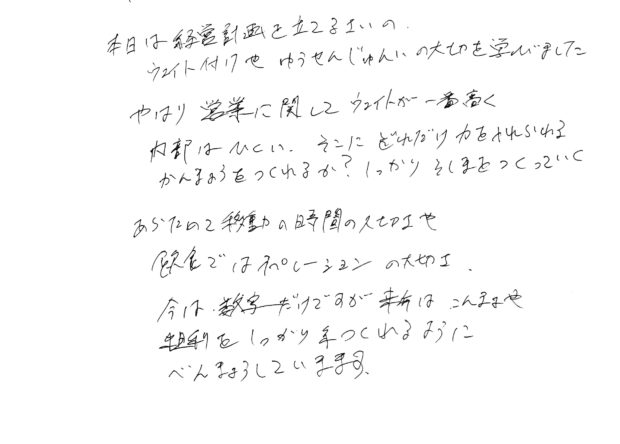 本日は経営計画を立てるさいの、
ウェイト付けや ゆうせんじゅんいの大切を学びました
やはり 営業に関して ウェイトが一番高く
内部は ひくい、そこに どれだけ 力を 入れられる
かんきょうをつくれるか? しっかり そしきをつくっていく
あらためて移動の時間の大切さや
飲食ではオペレーション の大切さ、
今は、数字だけですが 来年は こんきょや
粗利を しっかり つくれるように
べんきょうしていきます。